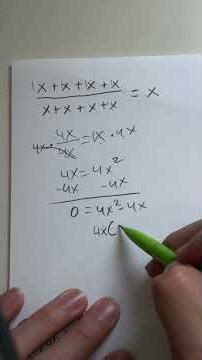 1x + 1x + 1x + 1x
x + x + x + x = x
4x · 4x/4x = 1x · 4x
4x = 4x²
-4x -4x
0 = 4x² - 4x
4x(